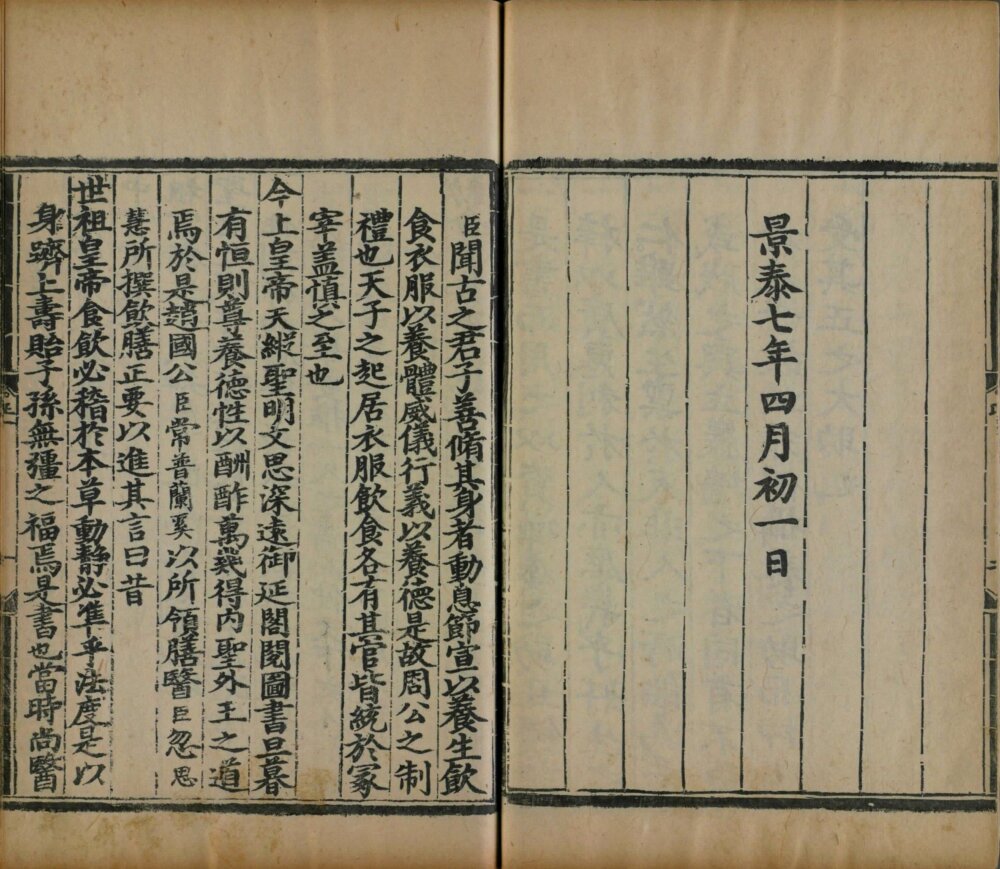 景泰七年四月初一日
臣聞古之君子善脩其身者動息節宣以養生飲
食衣服以養體威儀行義以養德是故周公之制
禮也天子之起居衣服飲食各有其官皆統於冢
宰盖慎之至也
今上皇帝天縱聖明文思深遠御延閣閱圖書旦暮
有恒則尊養德性以酬酢萬幾得内聖外王之道
焉於是趙國公臣常普蘭奚以所領膳醫臣忽思
慧所撰飲膳正要以進其言曰昔
世祖皇帝食飲必稽於本草動静必準乎法度是以
身躋上壽貽子孫無疆之福焉是書也當時尚醫